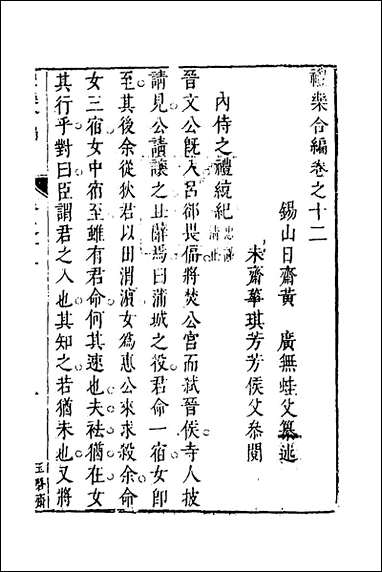 禮樂合編卷之十二
錫山日齋黃　廣無蛙父纂述
未齋華琪芳芳侯父叅閱
內侍之禮統紀 忠謀 清正
晉文公旣入呂郤畏偪將焚公宮而弒晉侯寺人披
請見公請讓之且辭焉曰蒲城之役君命一宿女卽
至其後余從狄君以田渭濵女爲惠公來求殺余命
女三宿女中宿至雖有君命何其速也夫袪猶在女
其行乎對曰臣謂君之入也其知之若猶未也又將
玉磬齋